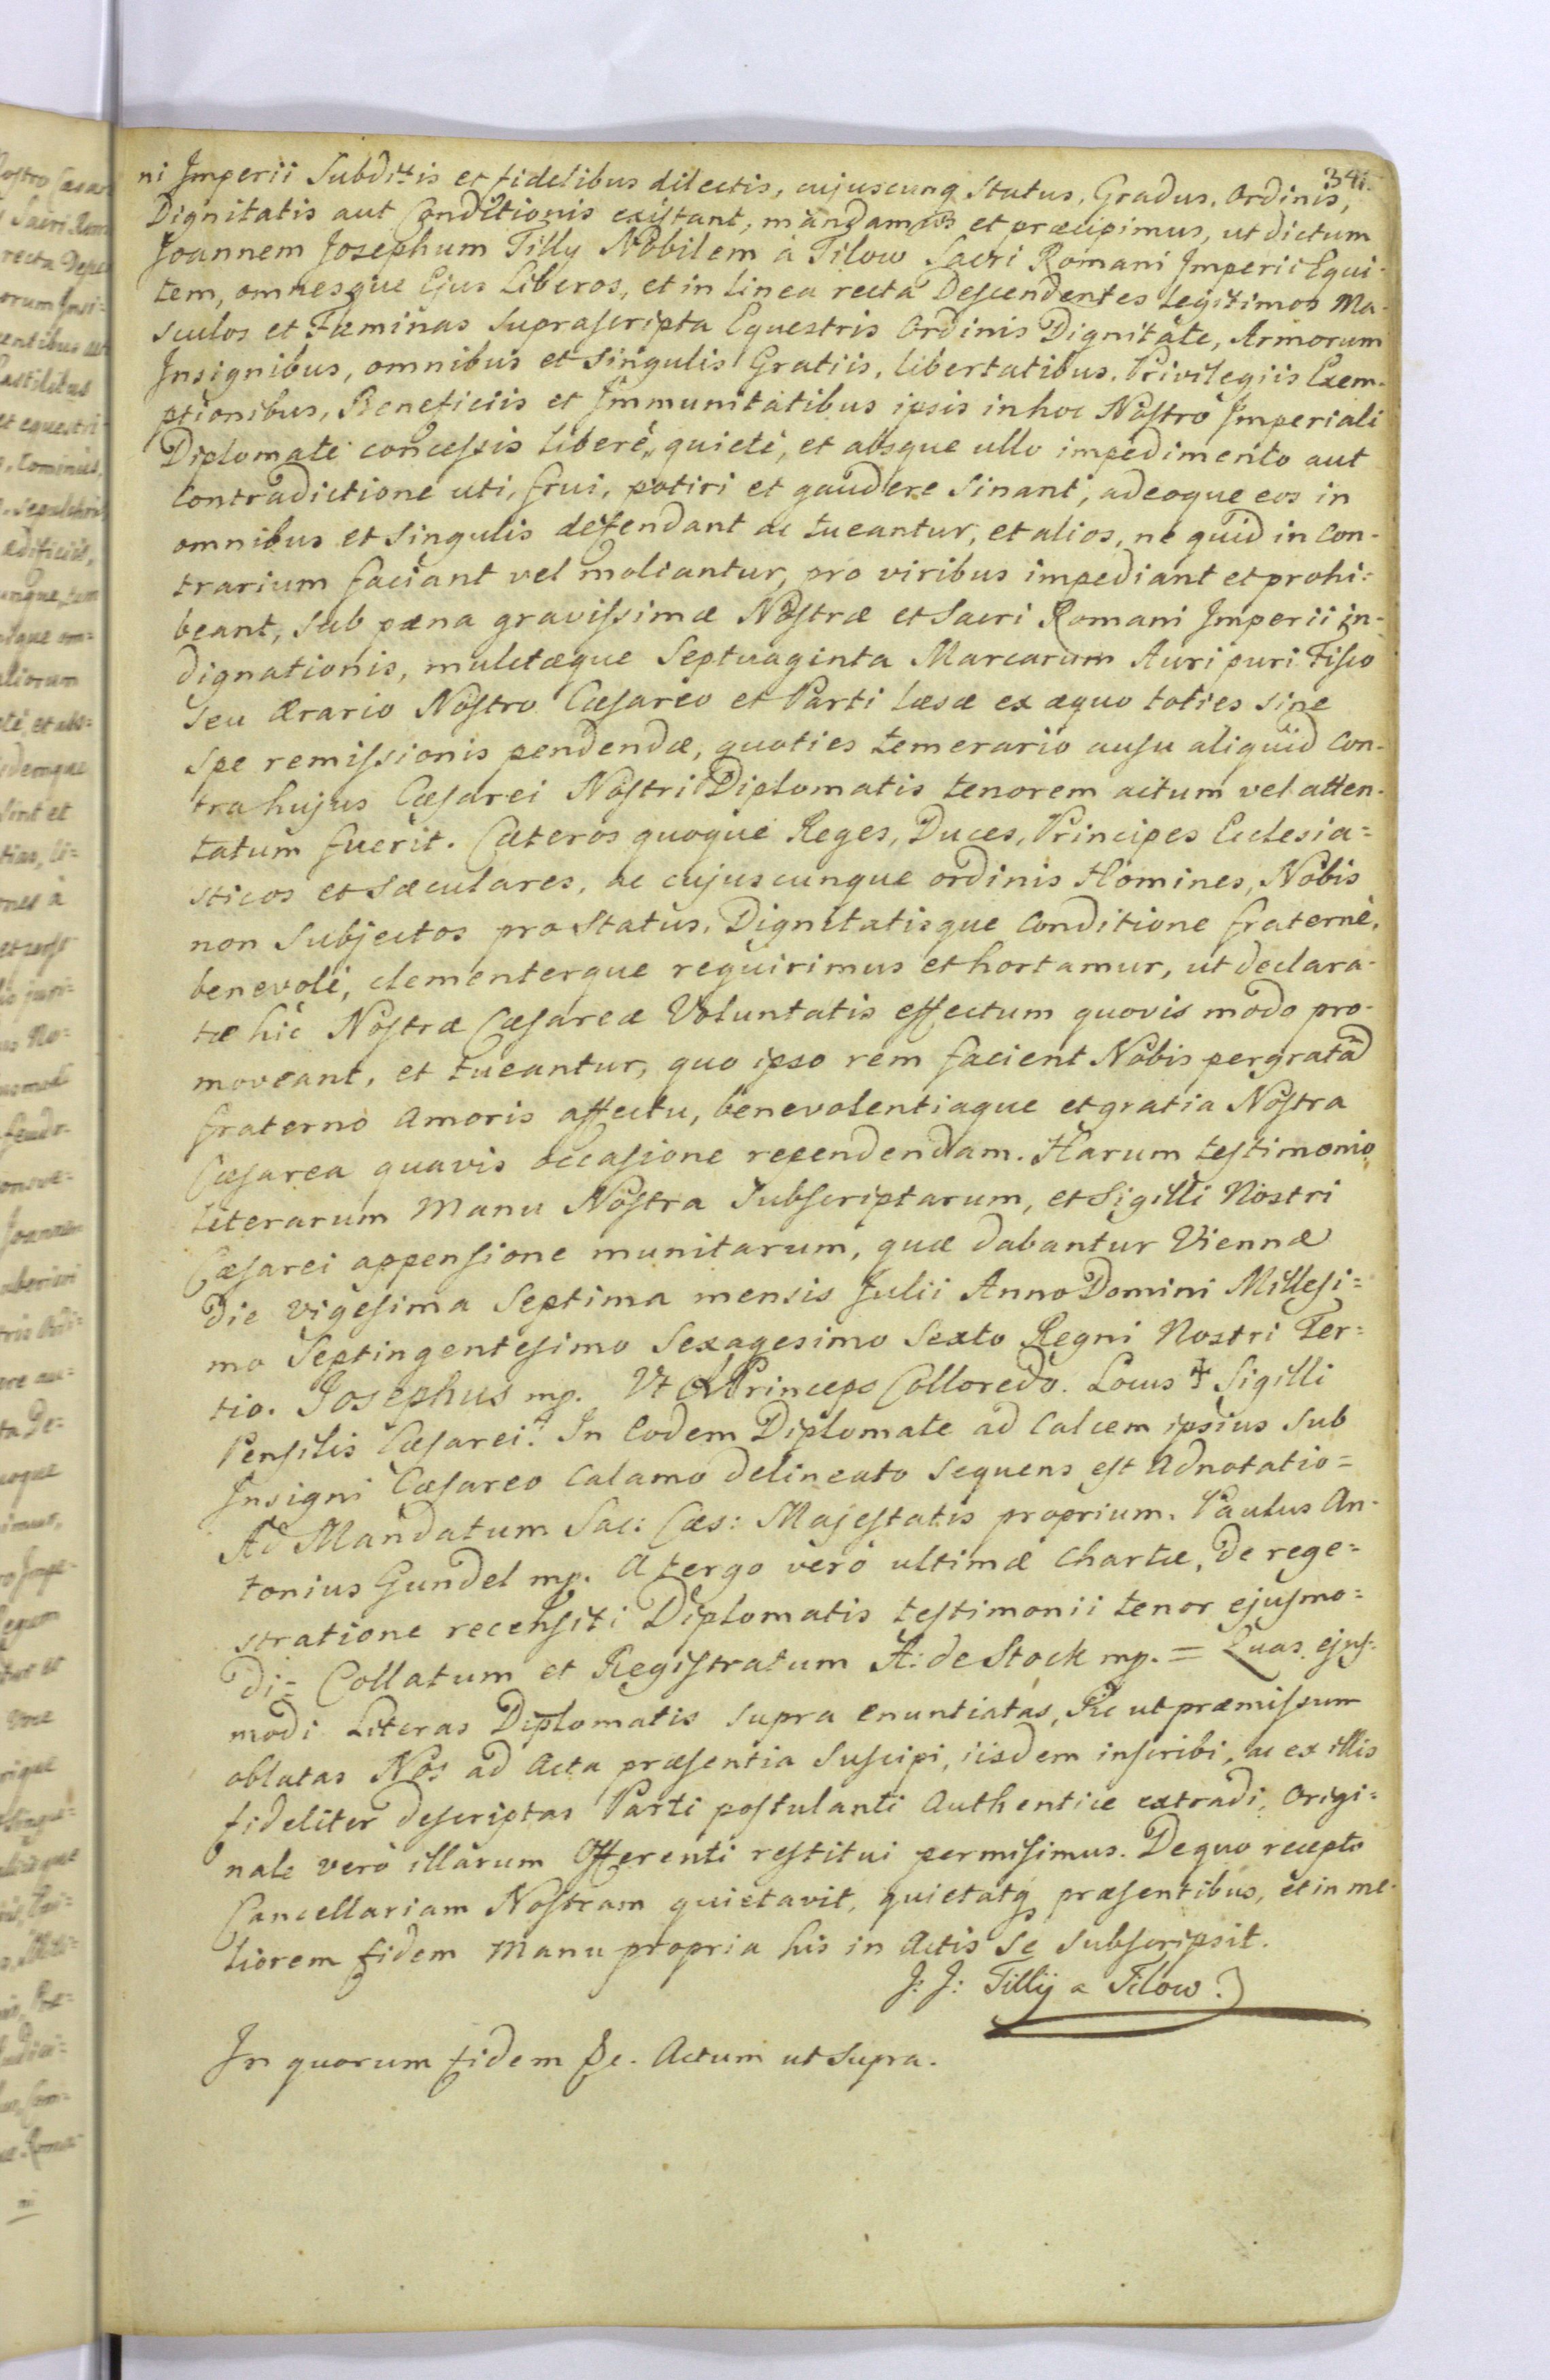 341.
ni Imperii Subditis et fidelibus dilectis, cujuscunq Status, Gradus, Ordinis,
Dignitatis aut Conditionis existant, mandamus et præcipimus, ut dictum
Joannem Josephum Tilly Nobilem à Tilow Sacri Romani Imperii Equi-
tem, omnesque Ejus Liberos, et in Linea recta Descendentes Legitimos Ma-
sculos et Fæminas Suprascripta Equestris Ordinis Dignitate, Armorum
Insignibus, omnibus et Singulis Gratiis, libertatibus, Privilegiis Exem-
ptionibus, Beneficiis et Immunitatibus ipsis in hoc Nostro Imperiali
Diplomate concessis liberè, quietè, et absque ullo impedimento aut
Contradictione uti, frui, potiri et gaudere Sinant, adeoque eos in
omnibus et Singulis defendant ac tueantur, et alios, ne quid in con-
trarium faciant vel moliantur, pro viribus impediant et prohi=
beant, Sub pæna gravissimæ Nostræ et Sacri Romani Imperii in-
dignationis, mulctæque Septuaginta Marcarum Auri puri Fisco
Seu Ærario Nostro Cæsareo et Parti læsæ ex æquo toties sine
Spe remissionis pendendæ, quoties temerario ausu aliquid con-
tra hujus Cæsarei Nostri Diplomatis tenorem actum vel atten-
tatum fuerit. Cæteros quoque Reges, Duces, Principes Ecclesia=
sticos et Sæculares, ac cujuscunque ordinis Homines, Nobis
non Subjectos pro Status, Dignitatisque Conditione fraternè,
benevolè, clementerque requirimus et hortamur, ut declara-
tæ hic Nostræ Cæsareæ Voluntatis effectum quovis modo pro-
moveant, et tueantur, quo ipso rem facient Nobis pergratã
fraterno Amoris affectu, benevolentiaque et gratia Nostra
Cæsarea quavis occasione rependendam. Harum testimonio
Literarum Manu Nostra Subscriptarum, et Sigilli Nostri
Cæsarei appensione munitarum, quæ dabantur Viennæ
Die Vigesima Septima mensis Julii Anno Domini Millesi=
mo Septingentesimo Sexagesimo Sexto Regni Nostri Ter=
tio. Josephus mp. Vt Princeps Colloredo. Locus ‡ Sigilli
Pensilis Cæsarei. In Eodem Diplomate ad Calcem ipsius Sub
Insigni Cæsareo Calamo delineato Sequens est Adnotatio=
Ad Mandatum Sac: Cæs: Majestatis proprium. Paulus An-
tonius Gundel mp. A tergo verò ultimæ Chartæ, De rege=
stratione recensiti Diplomatis testimonii tenor ejusmo=
di= Collatum et Registratum A: de Stock mp. = Quas ejus-
modi Literas Diplomatis Supra enuntiatas, Sic ut præmissum
oblatas Nos ad Acta præsentia Suscipi, iisdem inscribi, ac ex illis
fideliter descriptas Parti postulanti Authentice extradi, Origi=
nale verò illarum Offerenti restitui permisimus. De quo recepto
Cancellariam Nostram quietavit, quietatq præsentibus, et in me-
liorem fidem Manu propria his in Actis Se Subscripsit.
J: J: Tillij a Tilow.
In quorum fidem &c. Actum ut Supra.